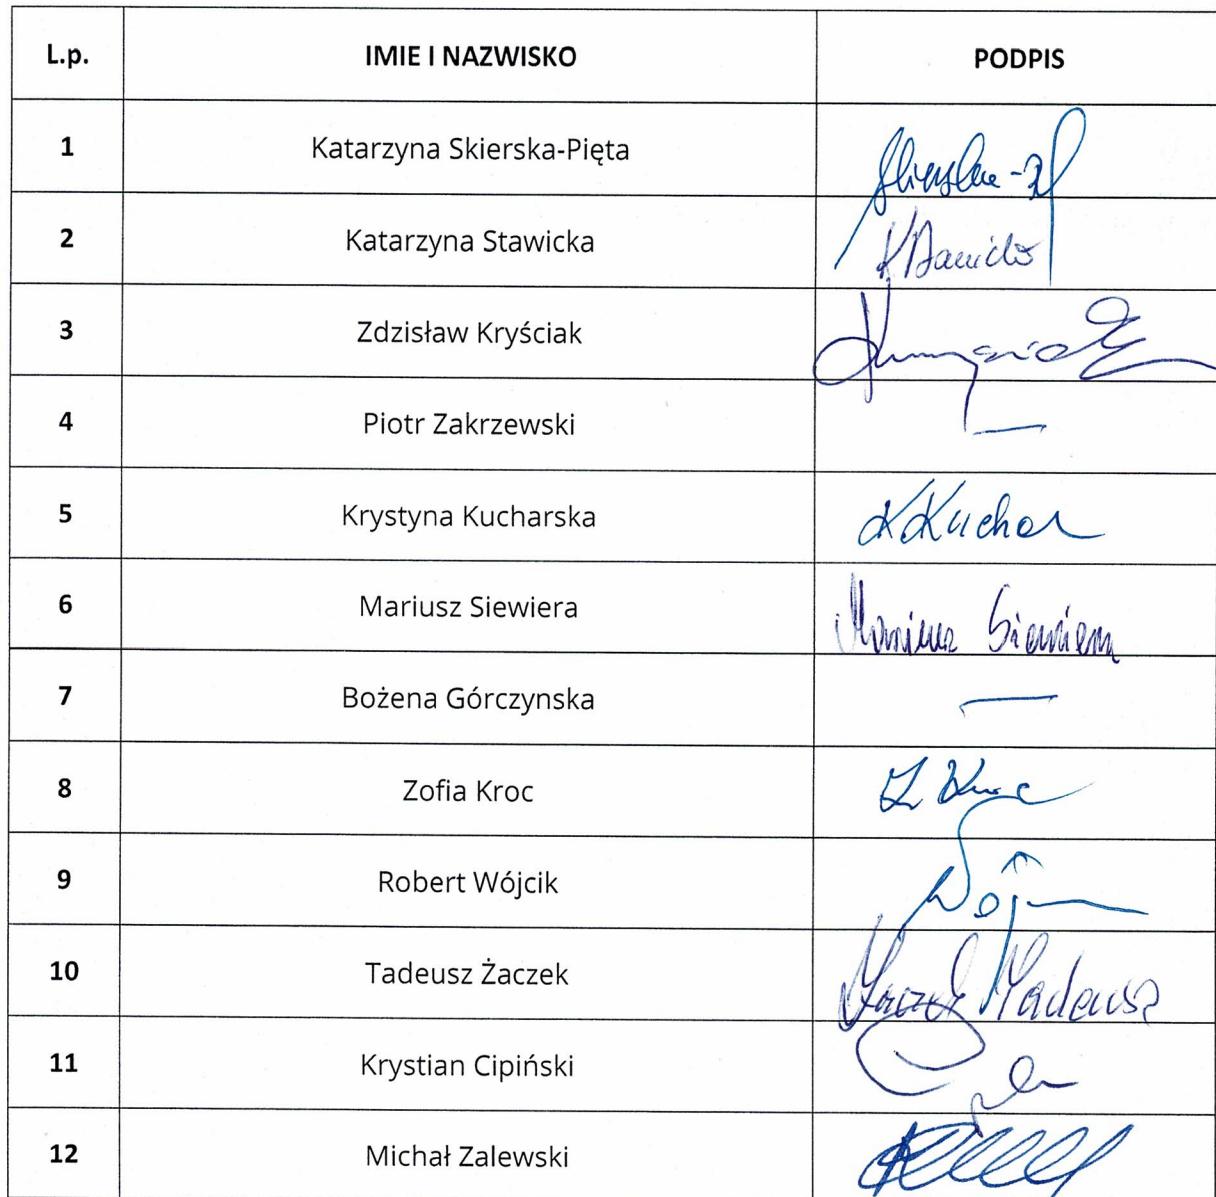 L.p. IMIE I NAZWISKO PODPIS
1 Katarzyna Skierska-Pięta
2 Katarzyna Stawicka
3 Zdzisław Kryściak
4 Piotr Zakrzewski —
5 Krystyna Kucharska KKuchar
6 Mariusz Siewiera Mariusz Siewiera
7 Bożena Górczynska —
8 Zofia Kroc Z Kroc
9 Robert Wójcik
10 Tadeusz Żaczek Żaczek Tadeusz
11 Krystian Cipiński
12 Michał Zalewski